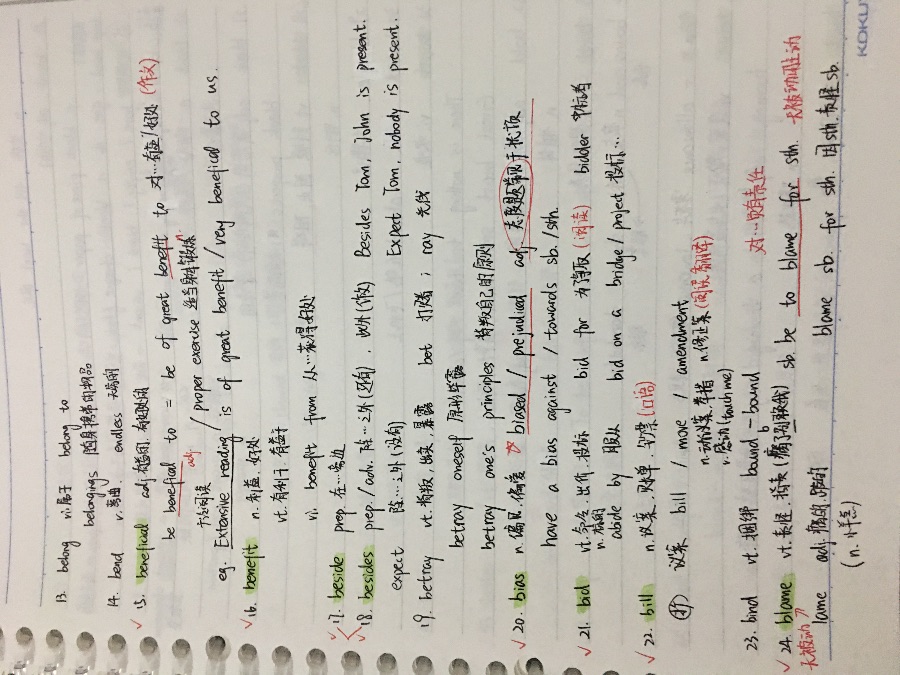 13. belong vi.属于 belong to
belongings 随身携带的物品
14. bend v.弯曲 endless 无尽的
✓15. beneficial adj.有益的,有好处的
be beneficial to = be of great benefit to 对…有益/好处 (作文)
adj n.
大量阅读 / proper exercise 适当身体锻炼
eg. Extensive reading / is of great benefit / very benefical to us.
✓16. benefit n.利益,好处
vt.有利于,有益于
vi. benefit from 从…获得好处
17. beside prep.在…旁边
✓18. besides prep./adv. 除…之外(还有),此外(作文) Besides Tom, John is present.
expect 除…之外(没有) Expect Tom, nobody is present.
19. betray vt.背叛,出卖,暴露 bet 打赌; ray 光线
betray oneself 原形毕露
betray one's principles 背叛自己的原则
✓20. bias n.偏见,偏爱 biased / prejudiced adj. 态度题常用干扰项
have a bias against / towards sb./sth.
✓21. bid vt.命令,出价,投标 bid for 为… (阅读) bidder 中标者
n.
abide by 服从 bid on a bridge/project 投标…
✓22. bill n.议案,账单,钞票 (口语)
议案 bill / move / amendment
n.动议,举措 n.修正案 (阅读翻译)
v.感动 (touch me)
23. bind vt.捆绑 bound-bound 对…负有责任
✓24. blame vt.责怪,指责 sb. be to blame for sth. 无被动
无被动
lame adj.瘸的,跛的 blame sb. for sth. 因sth.责怪sb.
KOKU